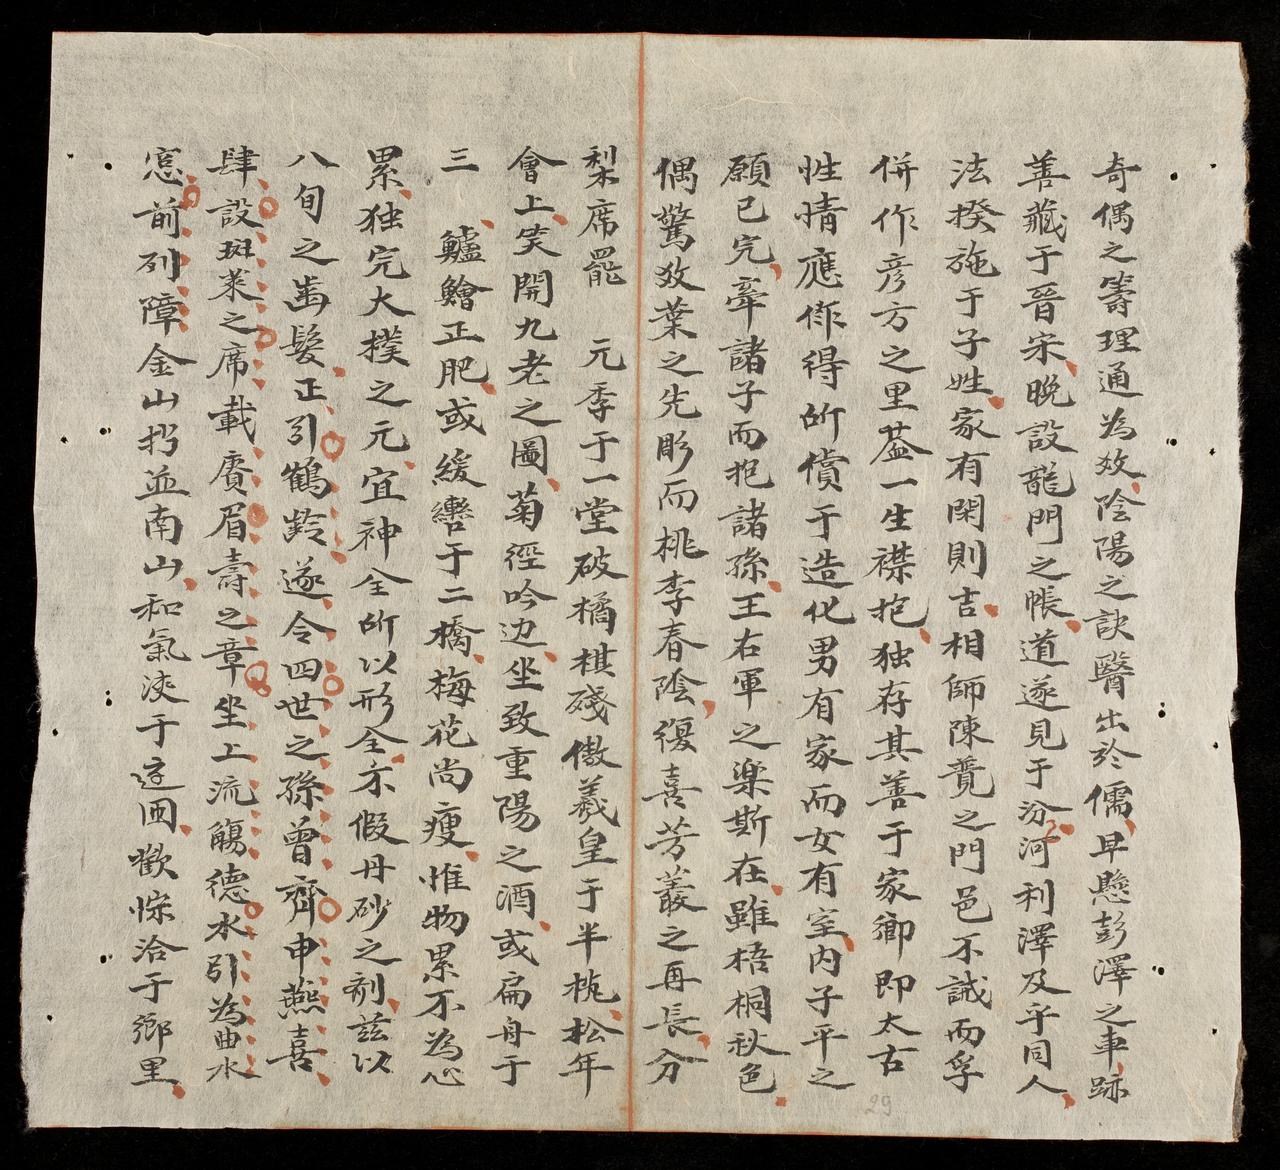 奇偶之籌理通為效陰陽之訣醫出於儒早懸彭澤之車跡
善藏于晉宋晚設龍門之帳道遂見于汾河利澤及乎同人
法揆施于子姓家有閑則吉相師陳寔之門邑不誡而孚
併作彦方之里蓋一生襟抱独存其善于家鄉即太古
性情應作得所償于造化男有家而女有室內子平之
願已完牽諸子而抱諸孫王右軍之楽斯在雖梧桐秋色
偶驚效葉之先彫而桃李春陰復喜芳叢之再長分
梨席罷 元季于一堂破橘棋殘傲羲皇于半枕松年
會上笑開九老之圖菊徑吟边坐致重陽之酒或扁舟于
三 鱸鱠正肥或緩轡于二橋梅花尚瘦惟物累不為心
累独完大樸之元宜神全所以形全亦假丹砂之剤茲以
八旬之齒髮正引鶴齡遂令四世之孫曾齊申燕喜
肆設斑萊之席載賡眉壽之章坐上流觴德水引為曲水
窓前列障金山扵並南山和氣浹于迩囲歡悰洽于鄉里
29